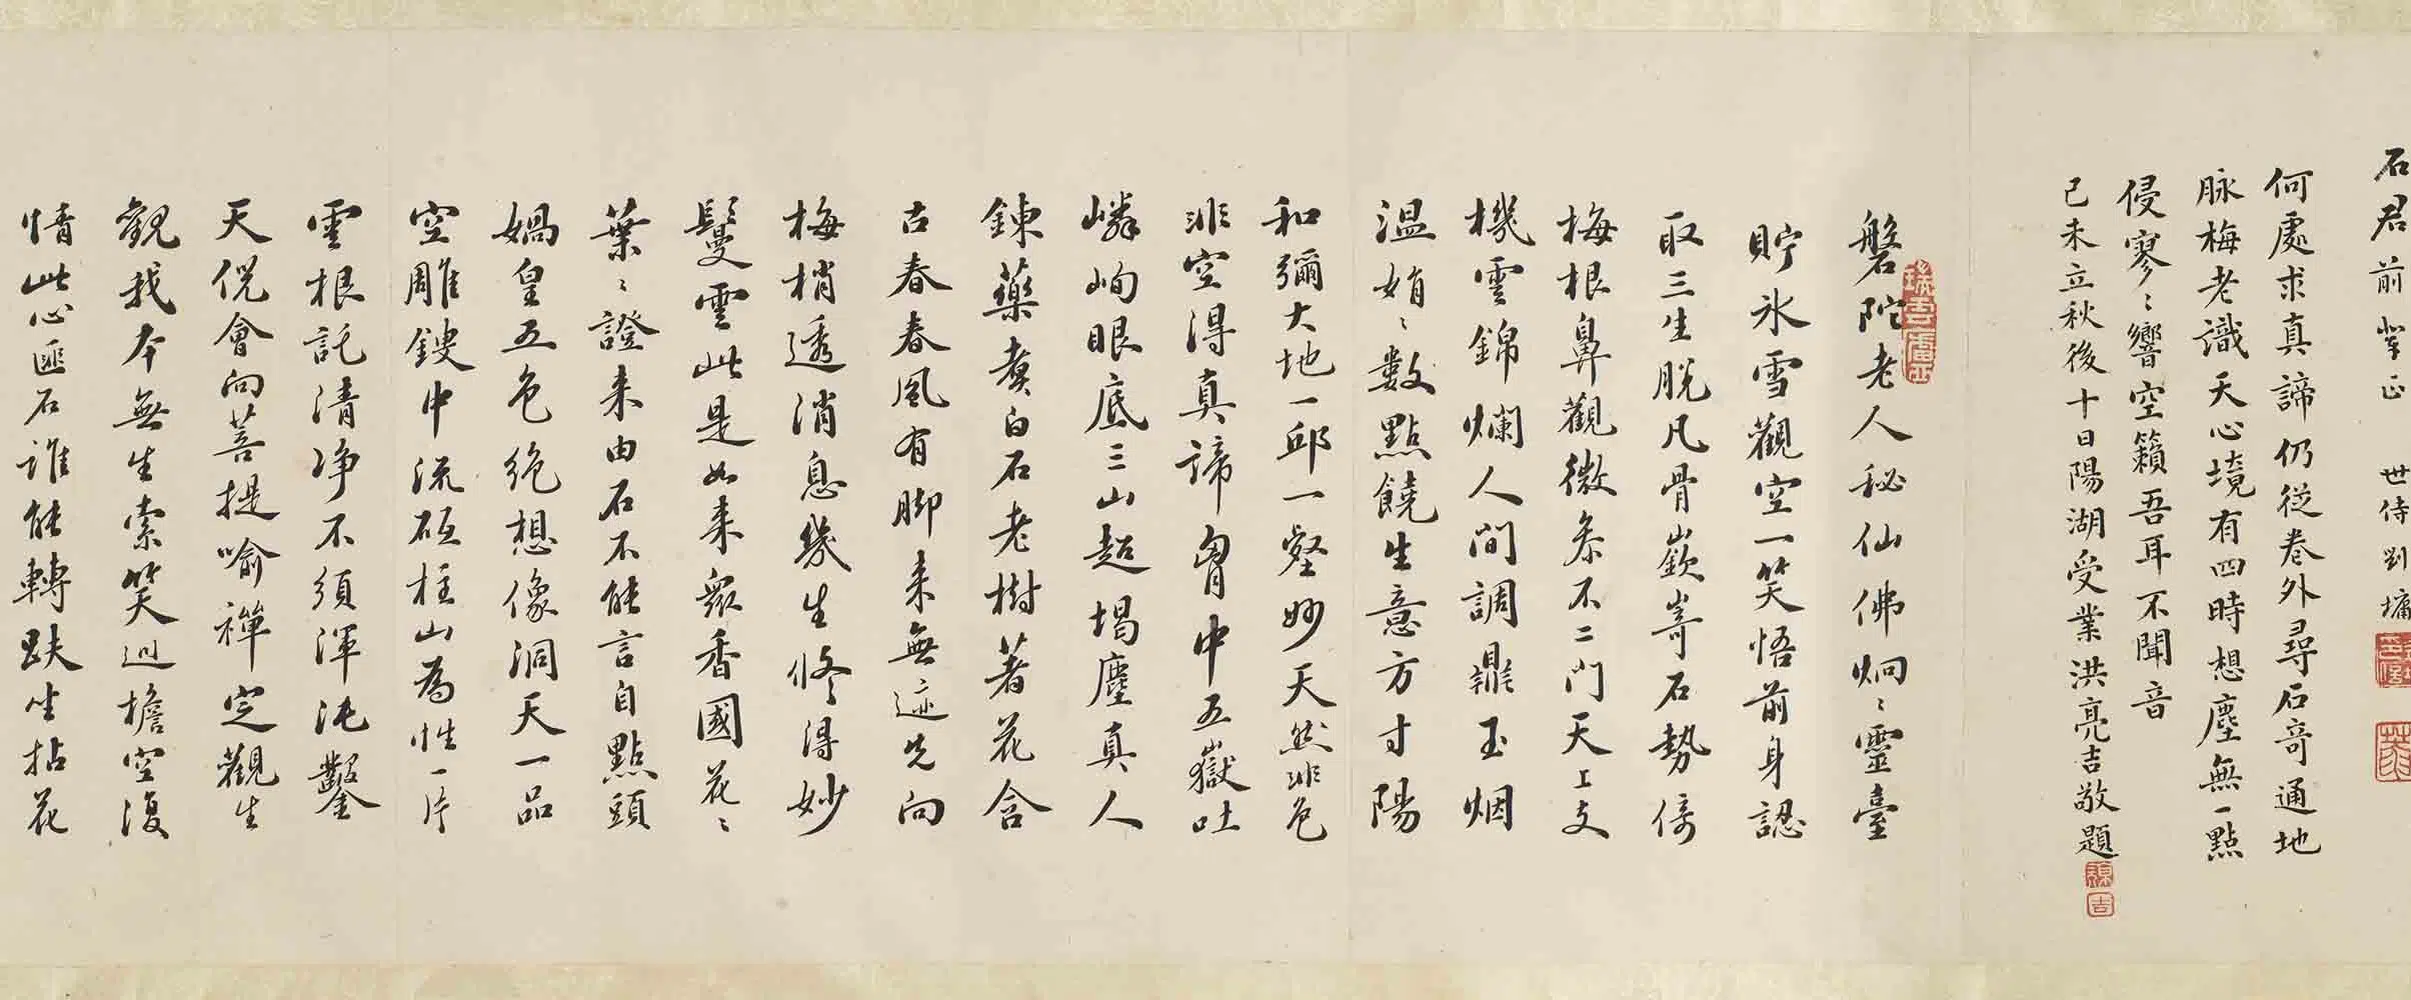 石君前輩正 世侍劉墉
何處求真諦仍從卷外尋石奇通地
脉梅老識天心境有四時想塵無一點
侵寥〻響空籟吾耳不聞音
己未立秋後十日陽湖受業洪亮吉敬題
磐陀老人秘仙佛炯〻靈臺
貯氷雪觀空一笑悟前身認
取三生脫凡骨嶔嵜石勢倚
梅根鼻觀微參不二門天上支
機雲錦爛人間調鼎玉烟
溫娟〻數點饒生意方寸陽
和彌大地一邱一壑妙天然非色
非空得真諦胷中五嶽吐
嶙峋眼底三山超堨塵真人
鍊藥煑白石老樹著花含
古春春風有脚来無迹先向
梅梢透消息幾生修得妙
鬘雲此是如来衆香國花〻
葉〻證来由石不能言自點頭
媧皇五色絶想像洞天一品
空雕鎪中流砥柱山為性一片
雲根託清净不須渾沌鑿
天倪會向菩提喻禪定觀生
觀我本無生索笑廵檐空復
情此心匪石誰能轉趺坐拈花